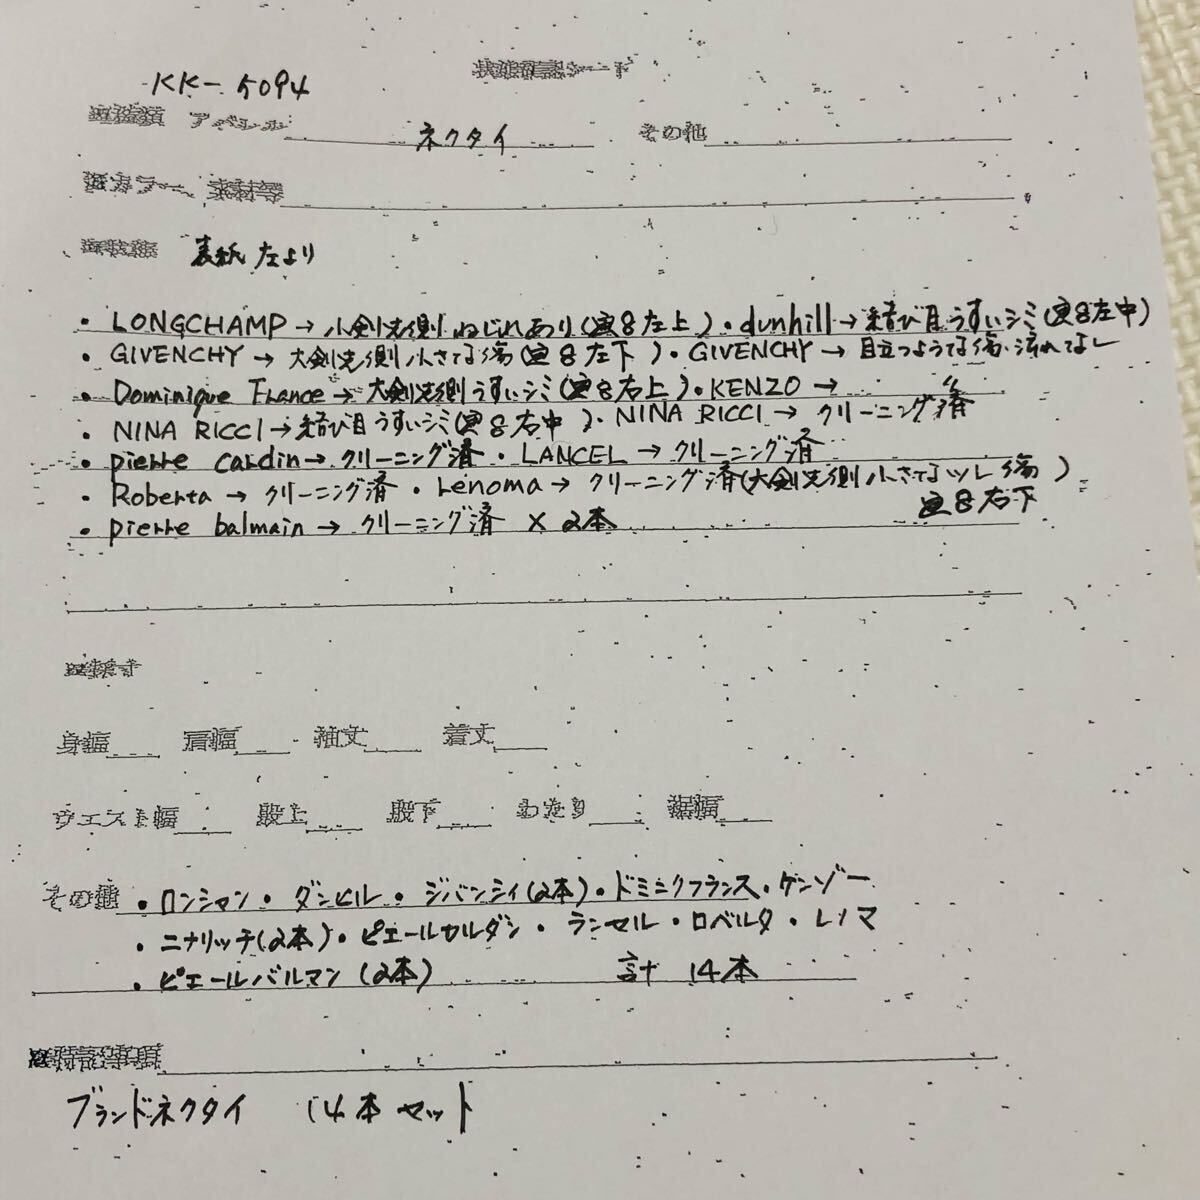 状態確認シート
KK-5094
アパレル ネクタイ その他
カラー 素材等
表紙 左より
・LONGCHAMP→小剣先側ねじれあり(写8左上)・dunhill→結び目うすいシミ(写8左中)
・GIVENCHY→大剣先側小さな傷(写8左下)・GIVENCHY→目立つような傷・汚れなし
・Dominique France→大剣先側うすいシミ(写8右上)・KENZO→ 〃
・NINA RICCI→結び目うすいシミ(写8右中)・NINA RICCI→クリーニング済
・pierre cardin→クリーニング済・LANCEL→クリーニング済
・Roberta→クリーニング済・renoma→クリーニング済(大剣先側小さなツレ傷)
写8右下
・pierre balmain→クリーニング済×2本
身幅 肩幅 袖丈 着丈
ウエスト幅 股上 股下 わたり 裾幅
その他・ロンシャン・ダンヒル・ジバンシィ(2本)・ドミニクフランス・ケンゾー
・ニナリッチ(2本)・ピエールカルダン・ランセル・ロベルタ・レノマ
・ピエールバルマン(2本) 計 14本
特記事項
ブランドネクタイ 14本セット